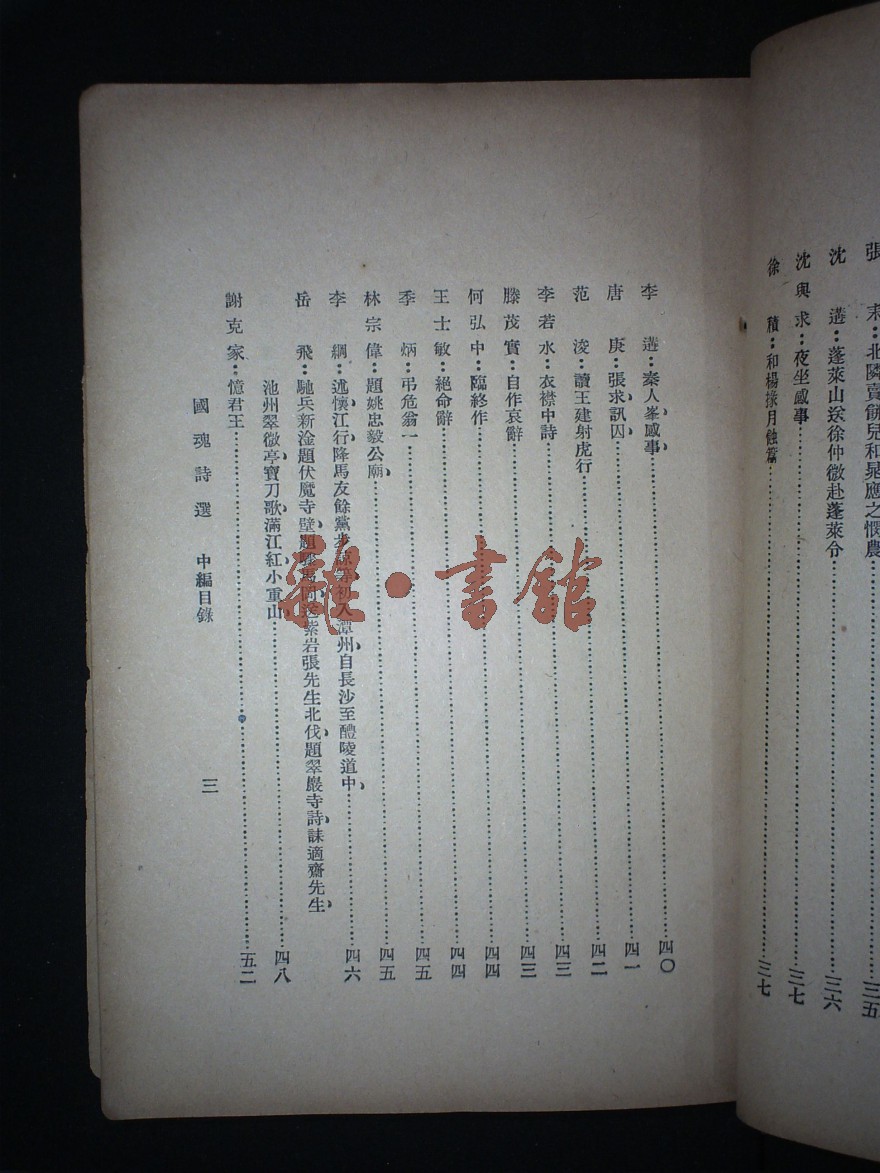 張　耒：北隣賣餅兒和晁應之憫農……三五
沈　遘：蓬萊山送徐仲微赴蓬萊令……三六
沈與求：夜坐感事……三七
徐　積：和楊掾月蝕篇……三七
李　遘：秦人峯、感事、……四〇
唐　庚：張求、訊囚……四一
范　浚：讀王建射虎行……四二
李若水：衣襟中詩……四三
滕茂實：自作哀辭……四三
何弘中：臨終作……四四
王士敏：絕命辭……四四
季　炳：弔危翁一……四五
林宗偉：題姚忠毅公廟、……四五
李　綱：述懷、江行、降馬友餘黨步諒等初入潭州、自長沙至醴陵道中、……四六
岳　飛：馳兵新淦題伏魔寺壁、題 紫岩張先生北伐、題翠巖寺詩、誄適齋先生、
池州翠微亭、寶刀歌、滿江紅、小重山、……四八
謝克家：憶君王……五二
國魂詩選　中編目錄　三
雜·書館